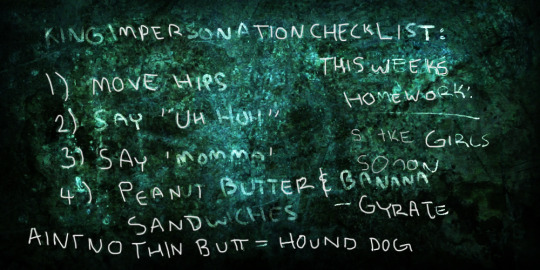 KING IMPERSONATION CHECKLIST:
1) MOVE HIPS
2) SAY "UH HUH"
3) SAY 'MOMMA'
4) PEANUT BUTTER & BANANA
SANDWICHES
AINT NO THIN BUTT = HOUND DOG
THIS WEEKS
HOMEWORK:
GIRLS
-- GYRATE